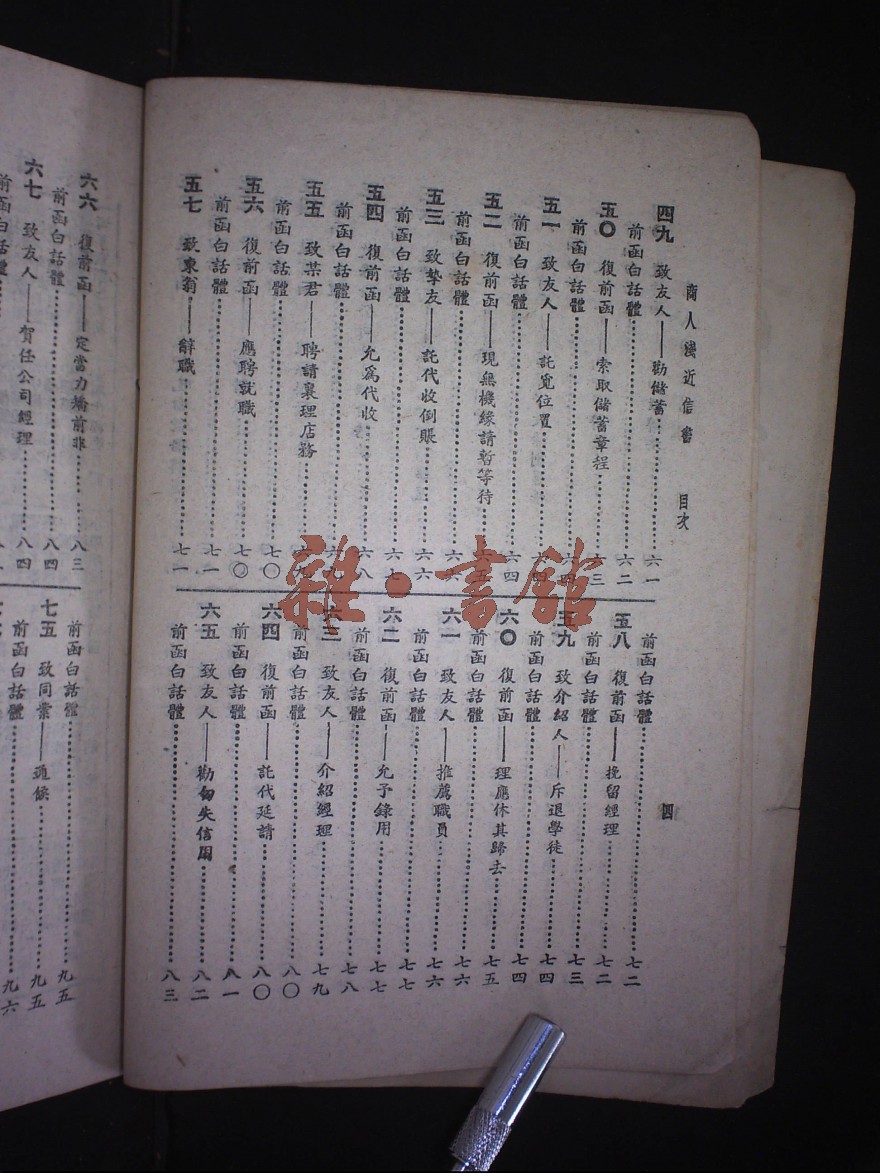 商人淺近信書　目次　四
四九　致友人——勸儲蓄……六一
前函白話體……六二
五〇　復前函——索取儲蓄章程……六三
前函白話體……六四
五一　致友人——託覓位置……六四
前函白話體……六四
五二　復前函——現無機緣請暫等待……六五
前函白話體……六六
五三　致摯友——託代收倒賬……六六
前函白話體……六七
五四　復前函——允爲代收……六八
前函白話體……六九
五五　致某君——聘請襄理店務……六九
前函白話體……七〇
五六　復前函——應聘就職……七〇
前函白話體……七一
五七　致東翁——辭職……七一
前函白話體……七二
五八　復前函——挽留經理……七二
前函白話體……七三
五九　致介紹人——斥退學徒……七四
前函白話體……七四
六〇　復前函——理應休其歸去……七五
前函白話體……七六
六一　致友人——推薦職員……七六
前函白話體……七七
六二　復前函——允予錄用……七七
前函白話體……七八
六三　致友人——介紹經理……七九
前函白話體……八〇
六四　復前函——託代延請……八〇
前函白話體……八一
六五　致友人——勸勿失信用……八二
前函白話體……八三
六六　復前函——定當力矯前非……八三
前函白話體……八四
六七　致友人——賀任公司經理……八四
前函白話體
前函白話體……九五
七五　致同業——通候……九五
前函白話體……九六
雜·書館